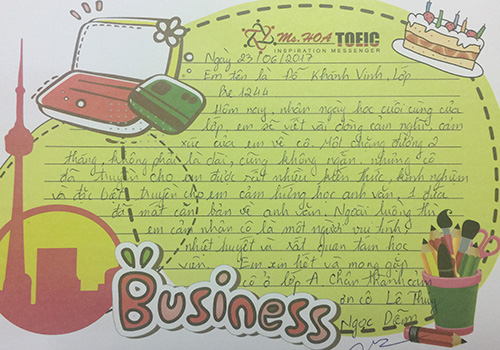 Ms. HOA TOEIC
INSPIRATION MESSENGER
Ngày 23/06/2017
Em tên là Đỗ Khánh Vinh, Lớp
Pre 1244
Hôm nay, nhân ngày học cuối cùng của
lớp em sẽ viết vài dòng cảm nghĩ, cảm
xúc của em về cô. Một chặng đường 2
tháng, không phải là dài, cũng không ngắn, nhưng cô
đã truyền cho em được rất nhiều kiến thức, kinh nghiệm
và đặc biệt truyền cho em cảm hứng học anh văn, 1 đứa
đã mất căn bản về anh văn. Ngoài luồng thì
em cảm nhận cô là một người vui tính,
nhiệt huyết và rất quan tâm học
viên. Em xin hết và mong gặp
cô ở lớp A. Chân thành cảm
ơn cô Lê Thuỵ
Ngọc Diễm
Business